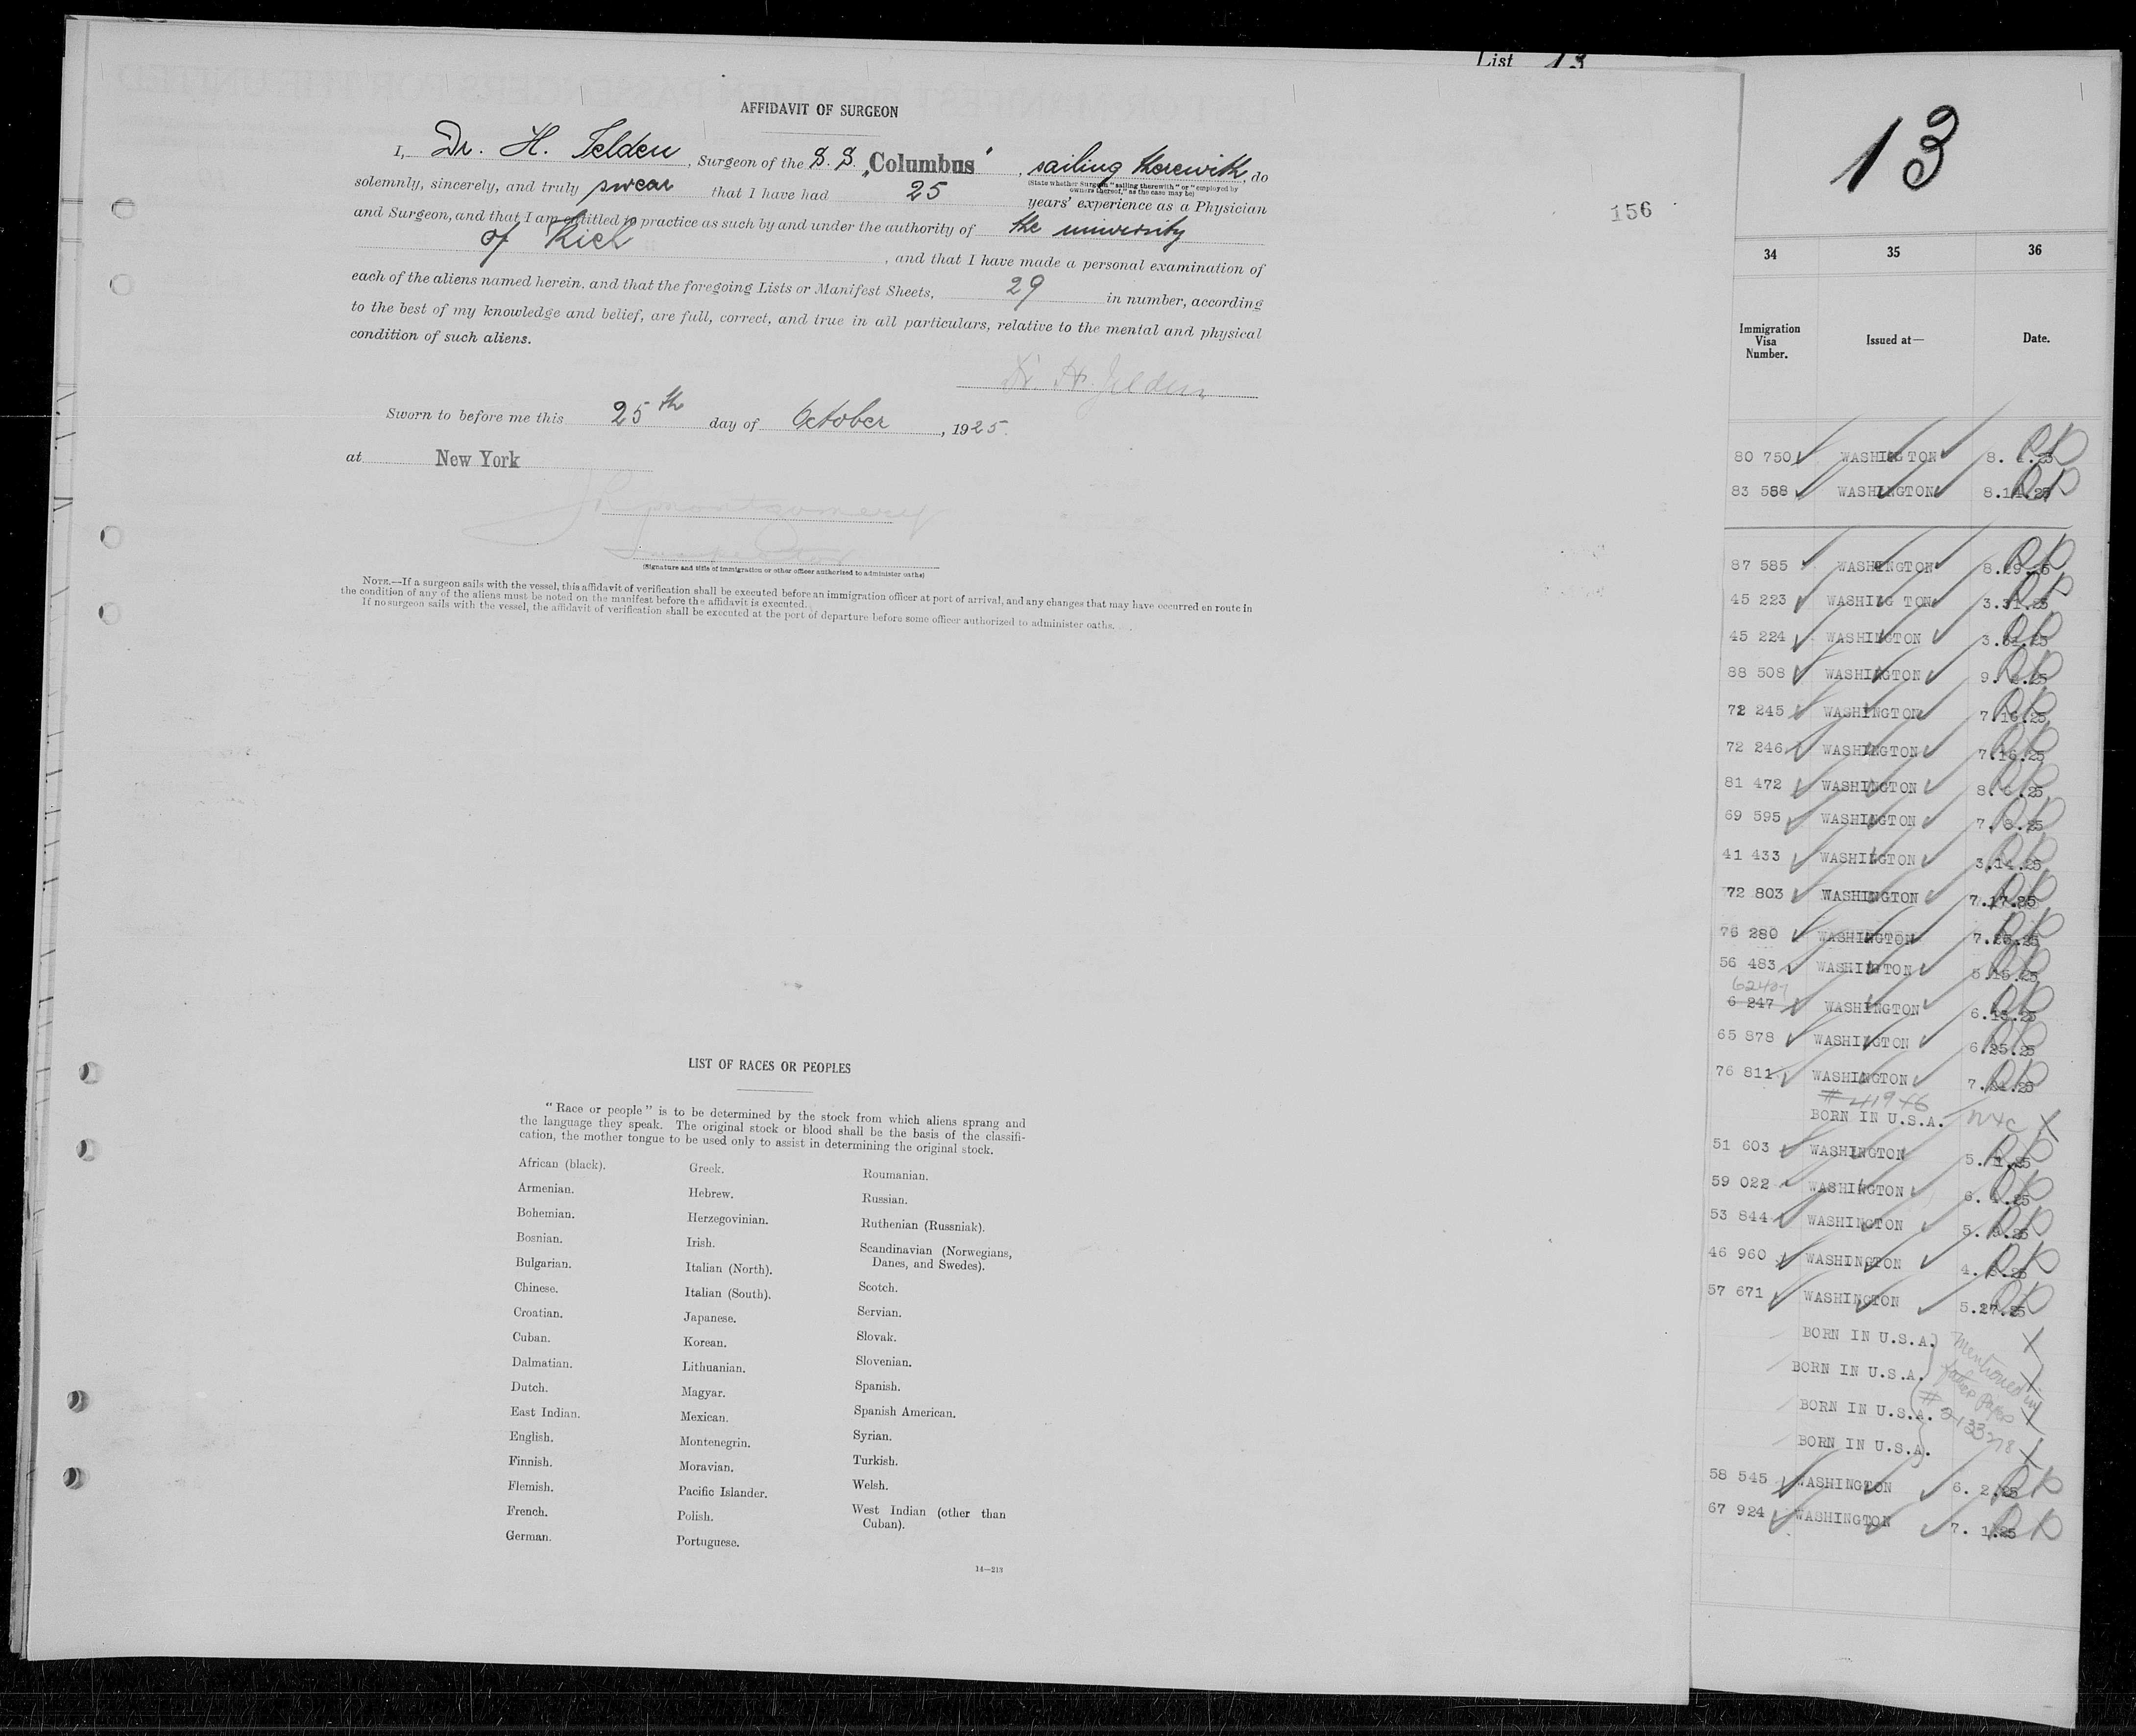 List 13
AFFIDAVIT OF SURGEON
I, Dr. H. Jelden, Surgeon of the S. S. „Columbus", sailing therewith, do
(State whether Surgeon "sailing therewith" or "employed by
owners thereof," as the case may be)
solemnly, sincerely, and truly swear that I have had 25 years' experience as a Physician
and Surgeon, and that I am entitled to practice as such by and under the authority of the university
of Kiel, and that I have made a personal examination of
each of the aliens named herein, and that the foregoing Lists or Manifest Sheets, 29 in number, according
to the best of my knowledge and belief, are full, correct, and true in all particulars, relative to the mental and physical
condition of such aliens.
Dr. H. Jelden
Sworn to before me this 25th day of October, 1925.
at New York
Montgomery
Inspector
(Signature and title of immigration or other officer authorized to administer oaths)
NOTE.—If a surgeon sails with the vessel, this affidavit of verification shall be executed before an immigration officer at port of arrival, and any changes that may have occurred en route in
the condition of any of the aliens must be noted on the manifest before the affidavit is executed.
If no surgeon sails with the vessel, the affidavit of verification shall be executed at the port of departure before some officer authorized to administer oaths.
156
LIST OF RACES OR PEOPLES
"Race or people" is to be determined by the stock from which aliens sprang and
the language they speak. The original stock or blood shall be the basis of the classifi-
cation, the mother tongue to be used only to assist in determining the original stock.
African (black).
Armenian.
Bohemian.
Bosnian.
Bulgarian.
Chinese.
Croatian.
Cuban.
Dalmatian.
Dutch.
East Indian.
English.
Finnish.
Flemish.
French.
German.
Greek.
Hebrew.
Herzegovinian.
Irish.
Italian (North).
Italian (South).
Japanese.
Korean.
Lithuanian.
Magyar.
Mexican.
Montenegrin.
Moravian.
Pacific Islander.
Polish.
Portuguese.
Roumanian.
Russian.
Ruthenian (Russniak).
Scandinavian (Norwegians,
Danes, and Swedes).
Scotch.
Servian.
Slovak.
Slovenian.
Spanish.
Spanish American.
Syrian.
Turkish.
Welsh.
West Indian (other than
Cuban).
14—213
13
34 35 36
Immigration
Visa
Number.
Issued at—
Date.
80 750 WASHINGTON
83 588 WASHINGTON 8.14.25
87 585 WASHINGTON 8.29.25
45 223 WASHING TON 3.31.25
45 224 WASHINGTON 3.31.25
88 508 WASHINGTON
72 245 WASHINGTON 7.16.25
72 246 WASHINGTON 7.16.25
81 472 WASHINGTON
69 595 WASHINGTON 7. 8.25
41 433 WASHINGTON 3.14.25
72 803 WASHINGTON 7.17.25
76 280 WASHINGTON
56 483 WASHINGTON 5.15.25
62407
6 247 WASHINGTON 6.13.25
65 878 WASHINGTON 6.25.25
76 811 WASHINGTON 7.31.25
BORN IN U.S.A.
51 603 WASHINGTON 5. 1.25
59 022 WASHINGTON
53 844 WASHINGTON
46 960 WASHINGTON
57 671 WASHINGTON 5.27.25
BORN IN U.S.A.
BORN IN U.S.A.
BORN IN U.S.A.
BORN IN U.S.A.
Mentioned in
58 545 WASHINGTON 6. 2.25
67 924 WASHINGTON 7. 1.25